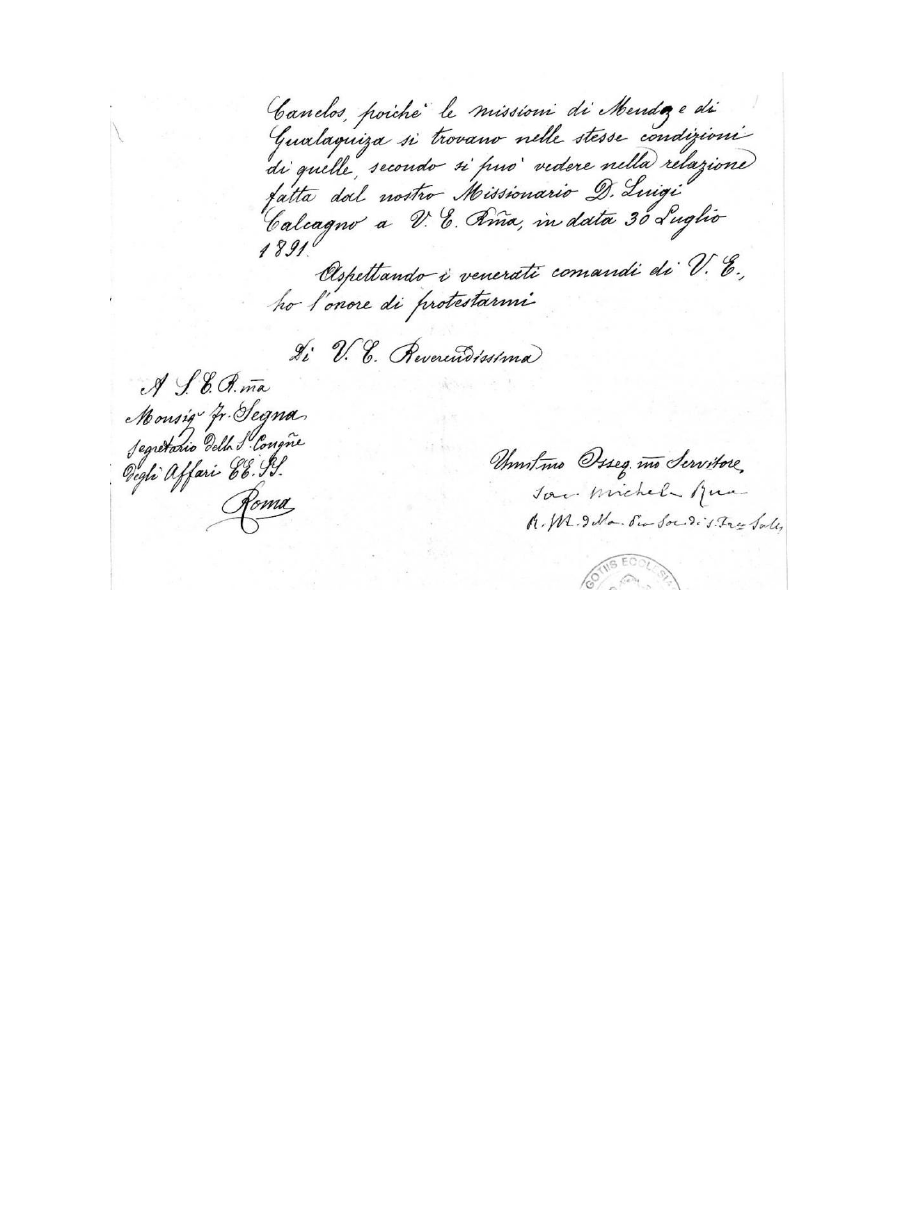 Canelos, poichè le missioni di Mendoz e di
Gualaquiza si trovano nelle stesse condizioni
di quelle, secondo si può vedere nella relazione
fatta dal nostro Missionario D. Luigi
Calcagno a V. E. Rm̃a, in data 30 Luglio
1891.
Aspettando i venerati comandi di V. E.,
ho l'onore di protestarmi
Di V. E. Reverendissima
A S. E. R.m̃a
Monsigr Fr. Segna
Segretario della Sa Congñe
degli Affari EE. SS.
Roma
Umilmo Osseq.mo Servitore
Sac. Michele Rua
R. M. della Pia Soc. di S. Frco Sales
GOTIIS ECCLESIA